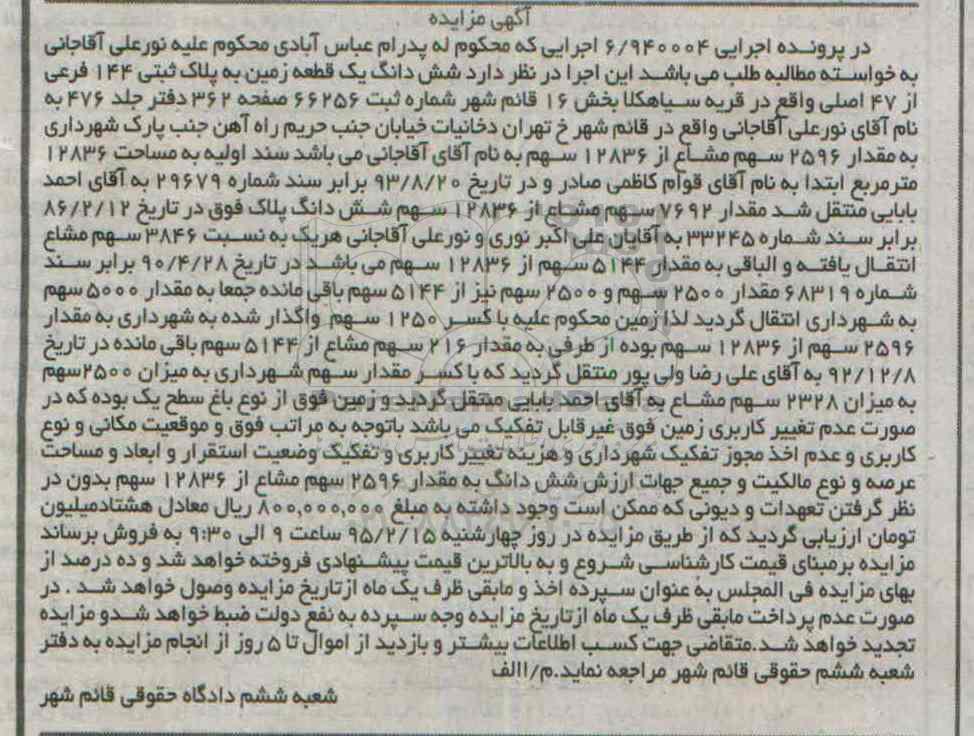 آگهی مزایده
در پرونده اجرایی ۶/۹۴۰۰۰۴ اجرایی که محکوم له پدرام عباس آبادی محکوم علیه نورعلی آقاجانی
به خواسته مطالبه طلب می باشد این اجرا در نظر دارد شش دانگ یک قطعه زمین به پلاک ثبتی ۱۴۴ فرعی
از ۴۷ اصلی واقع در قریه سیاهکلا بخش ۱۶ قائم شهر شماره ثبت ۶۶۲۵۶ صفحه ۳۶۲ دفتر جلد ۴۷۶ به
نام آقای نورعلی آقاجانی واقع در قائم شهر خ تهران دخانیات خیابان جنب حریم راه آهن جنب پارک شهرداری
به مقدار ۲۵۹۶ سهم مشاع از ۱۲۸۳۶ سهم به نام آقای آقاجانی می باشد سند اولیه به مساحت ۱۲۸۳۶
مترمربع ابتدا به نام آقای قوام کاظمی صادر و در تاریخ ۹۳/۸/۲۰ برابر سند شماره ۲۹۶۷۹ به آقای احمد
بابایی منتقل شد مقدار ۷۶۹۲ سهم مشاع از ۱۲۸۳۶ سهم شش دانگ پلاک فوق در تاریخ ۸۶/۲/۱۲
برابر سند شماره ۳۳۲۴۵ به آقایان علی اکبر نوری و نورعلی آقاجانی هریک به نسبت ۳۸۴۶ سهم مشاع
انتقال یافته و الباقی به مقدار ۵۱۴۴ سهم از ۱۲۸۳۶ سهم می باشد در تاریخ ۹۰/۴/۲۸ برابر سند
شماره ۶۸۳۱۹ مقدار ۲۵۰۰ سهم و ۲۵۰۰ سهم نیز از ۵۱۴۴ سهم باقی مانده جمعا به مقدار ۵۰۰۰ سهم
به شهرداری انتقال گردید لذا زمین محکوم علیه با کسر ۱۲۵۰ سهم واگذار شده به شهرداری به مقدار
۲۵۹۶ سهم از ۱۲۸۳۶ سهم بوده از طرفی به مقدار ۲۱۶ سهم مشاع از ۵۱۴۴ سهم باقی مانده در تاریخ
۹۲/۱۲/۸ به آقای علی رضا ولی پور منتقل گردید که با کسر مقدار سهم شهرداری به میزان ۲۵۰۰سهم
به میزان ۲۳۲۸ سهم مشاع به آقای احمد بابایی منتقل گردید و زمین فوق از نوع باغ سطح یک بوده که در
صورت عدم تغییر کاربری زمین فوق غیرقابل تفکیک می باشد باتوجه به مراتب فوق و موقعیت مکانی و نوع
کاربری و عدم اخذ مجوز تفکیک شهرداری و هزینه تغییر کاربری و تفکیک وضعیت استقرار و ابعاد و مساحت
عرصه و نوع مالکیت و جمیع جهات ارزش شش دانگ به مقدار ۲۵۹۶ سهم مشاع از ۱۲۸۳۶ سهم بدون در
نظر گرفتن تعهدات و دیونی که ممکن است وجود داشته به مبلغ ۸۰۰,۰۰۰,۰۰۰ ریال معادل هشتادمیلیون
تومان ارزیابی گردید که از طریق مزایده در روز چهارشنبه ۹۵/۲/۱۵ ساعت ۹ الی ۹:۳۰ به فروش برساند
مزایده برمبنای قیمت کارشناسی شروع و به بالاترین قیمت پیشنهادی فروخته خواهد شد و ده درصد از
بهای مزایده فی المجلس به عنوان سپرده اخذ و مابقی ظرف یک ماه ازتاریخ مزایده وصول خواهد شد . در
صورت عدم پرداخت مابقی ظرف یک ماه ازتاریخ مزایده وجه سپرده به نفع دولت ضبط خواهد شدو مزایده
تجدید خواهد شد.متقاضی جهت کسب اطلاعات بیشتر و بازدید از اموال تا ۵ روز از انجام مزایده به دفتر
شعبه ششم حقوقی قائم شهر مراجعه نماید.م/۱۱الف
شعبه ششم دادگاه حقوقی قائم شهر